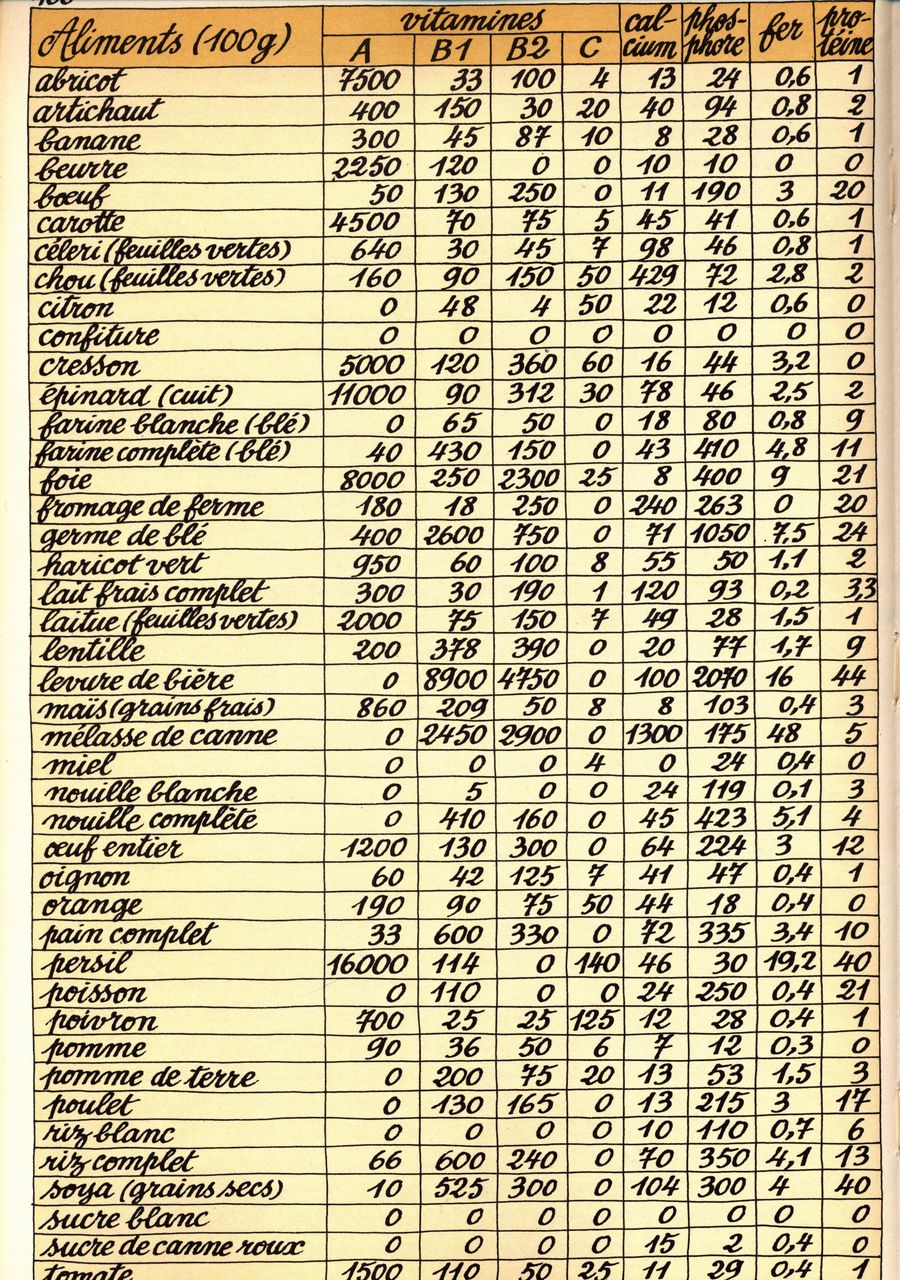 Aliments (100g) vitamines cal-cium phos-phore fer pro-téine
A B1 B2 C
abricot 7500 33 100 4 13 24 0,6 1
artichaut 400 150 30 20 40 94 0,8 2
banane 300 45 87 10 8 28 0,6 1
beurre 2250 120 0 0 10 10 0 0
bœuf 50 130 250 0 11 190 3 20
carotte 4500 70 75 5 45 41 0,6 1
céleri (feuilles vertes) 640 30 45 7 98 46 0,8 1
chou (feuilles vertes) 160 90 150 50 429 72 2,8 2
citron 0 48 4 50 22 12 0,6 0
confiture 0 0 0 0 0 0 0 0
cresson 5000 120 360 60 16 44 3,2 0
épinard (cuit) 11000 90 312 30 78 46 2,5 2
farine blanche (blé) 0 65 50 0 18 80 0,8 9
farine complète (blé) 40 430 150 0 43 410 4,8 11
foie 8000 250 2300 25 8 400 9 21
fromage de ferme 180 18 250 0 240 263 0 20
germe de blé 400 2600 750 0 71 1050 7,5 24
haricot vert 950 60 100 8 55 50 1,1 2
lait frais complet 300 30 190 1 120 93 0,2 3,3
laitue (feuilles vertes) 2000 75 150 7 49 28 1,5 1
lentille 200 378 390 0 20 77 1,7 9
levure de bière 0 8900 4750 0 100 2070 16 44
maïs (grains frais) 860 209 50 8 8 103 0,4 3
mélasse de canne 0 2450 2900 0 1300 175 48 5
miel 0 0 0 4 0 24 0,4 0
nouille blanche 0 5 0 0 24 119 0,1 3
nouille complète 0 410 160 0 45 423 5,1 4
œuf entier 1200 130 300 0 64 224 3 12
oignon 60 42 125 7 41 47 0,4 1
orange 190 90 75 50 44 18 0,4 0
pain complet 33 600 330 0 72 335 3,4 10
persil 16000 114 0 140 46 30 19,2 40
poisson 0 110 0 0 24 250 0,4 21
poivron 700 25 25 125 12 28 0,4 1
pomme 90 36 50 6 7 12 0,3 0
pomme de terre 0 200 75 20 13 53 1,5 3
poulet 0 130 165 0 13 215 3 17
riz blanc 0 0 0 0 10 110 0,7 6
riz complet 66 600 240 0 70 350 4,1 13
soya (grains secs) 10 525 300 0 104 300 4 40
sucre blanc 0 0 0 0 0 0 0 0
sucre de canne roux 0 0 0 0 15 2 0,4 0
tomate 1500 110 50 25 11 29 0,4 1